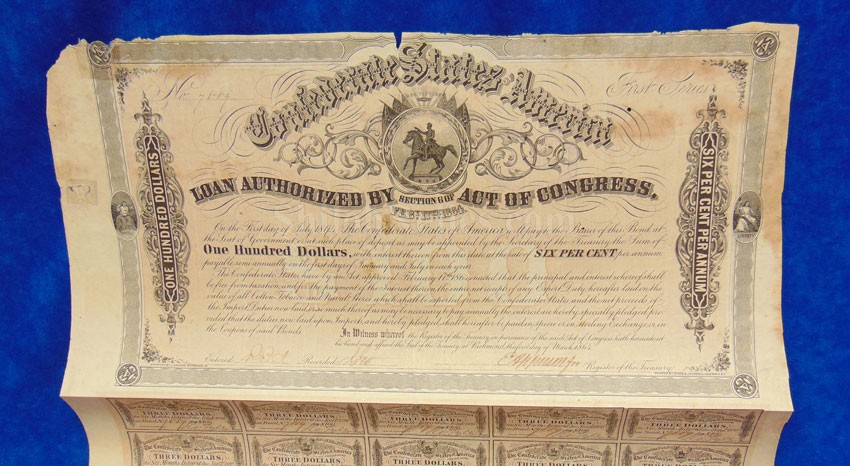 No
First Series
Confederate States America
LOAN AUTHORIZED BY SECTION 6 OF ACT OF CONGRESS.
FEB: 17TH 1864.
ONE HUNDRED DOLLARS
SIX PER CENT PER ANNUM
On the First day of July 1894, The Confederate States of America will pay to the Bearer of this Bond at
the Seat of Government or at such place of deposit as may be appointed by the Secretary of the Treasury the Sum of
One Hundred Dollars, with interest thereon from this date at the rate of SIX PER CENT per annum
payable semi annually on the first days of January and July in each year.
The Confederate States have by an Act approved February 17th 1864 enacted that the principal and interest whereof shall
be free from taxation and for the payment of the interest thereon the entire net receipts of any Export Duty hereafter laid on the
value of all Cotton, Tobacco and Naval Stores which shall be exported from the Confederate States and the net proceeds of
the Import Duties now laid or so much thereof as may be necessary to pay annually the interest are hereby specially pledged: pro-
vided that the duties now laid upon Imports and hereby pledged shall hereafter be paid in specie or in Sterling Exchange or in
the Coupons of said Bonds.
In Witness whereof, the Register of the Treasury in pursuance of the said Act of Congress hath hereunto set
his hand and affixed the Seal of the Treasury at Richmond this first day of March 1864.
Entered Recorded Register of the Treasury.
THREE DOLLARS THREE DOLLARS THREE DOLLARS THREE DOLLARS THREE DOLLARS
The Confederate States of America The Confederate States of America The Confederate States of America The Confederate States of America The Confederate States of America
THREE DOLLARS THREE DOLLARS THREE DOLLARS THREE DOLLARS THREE DOLLARS